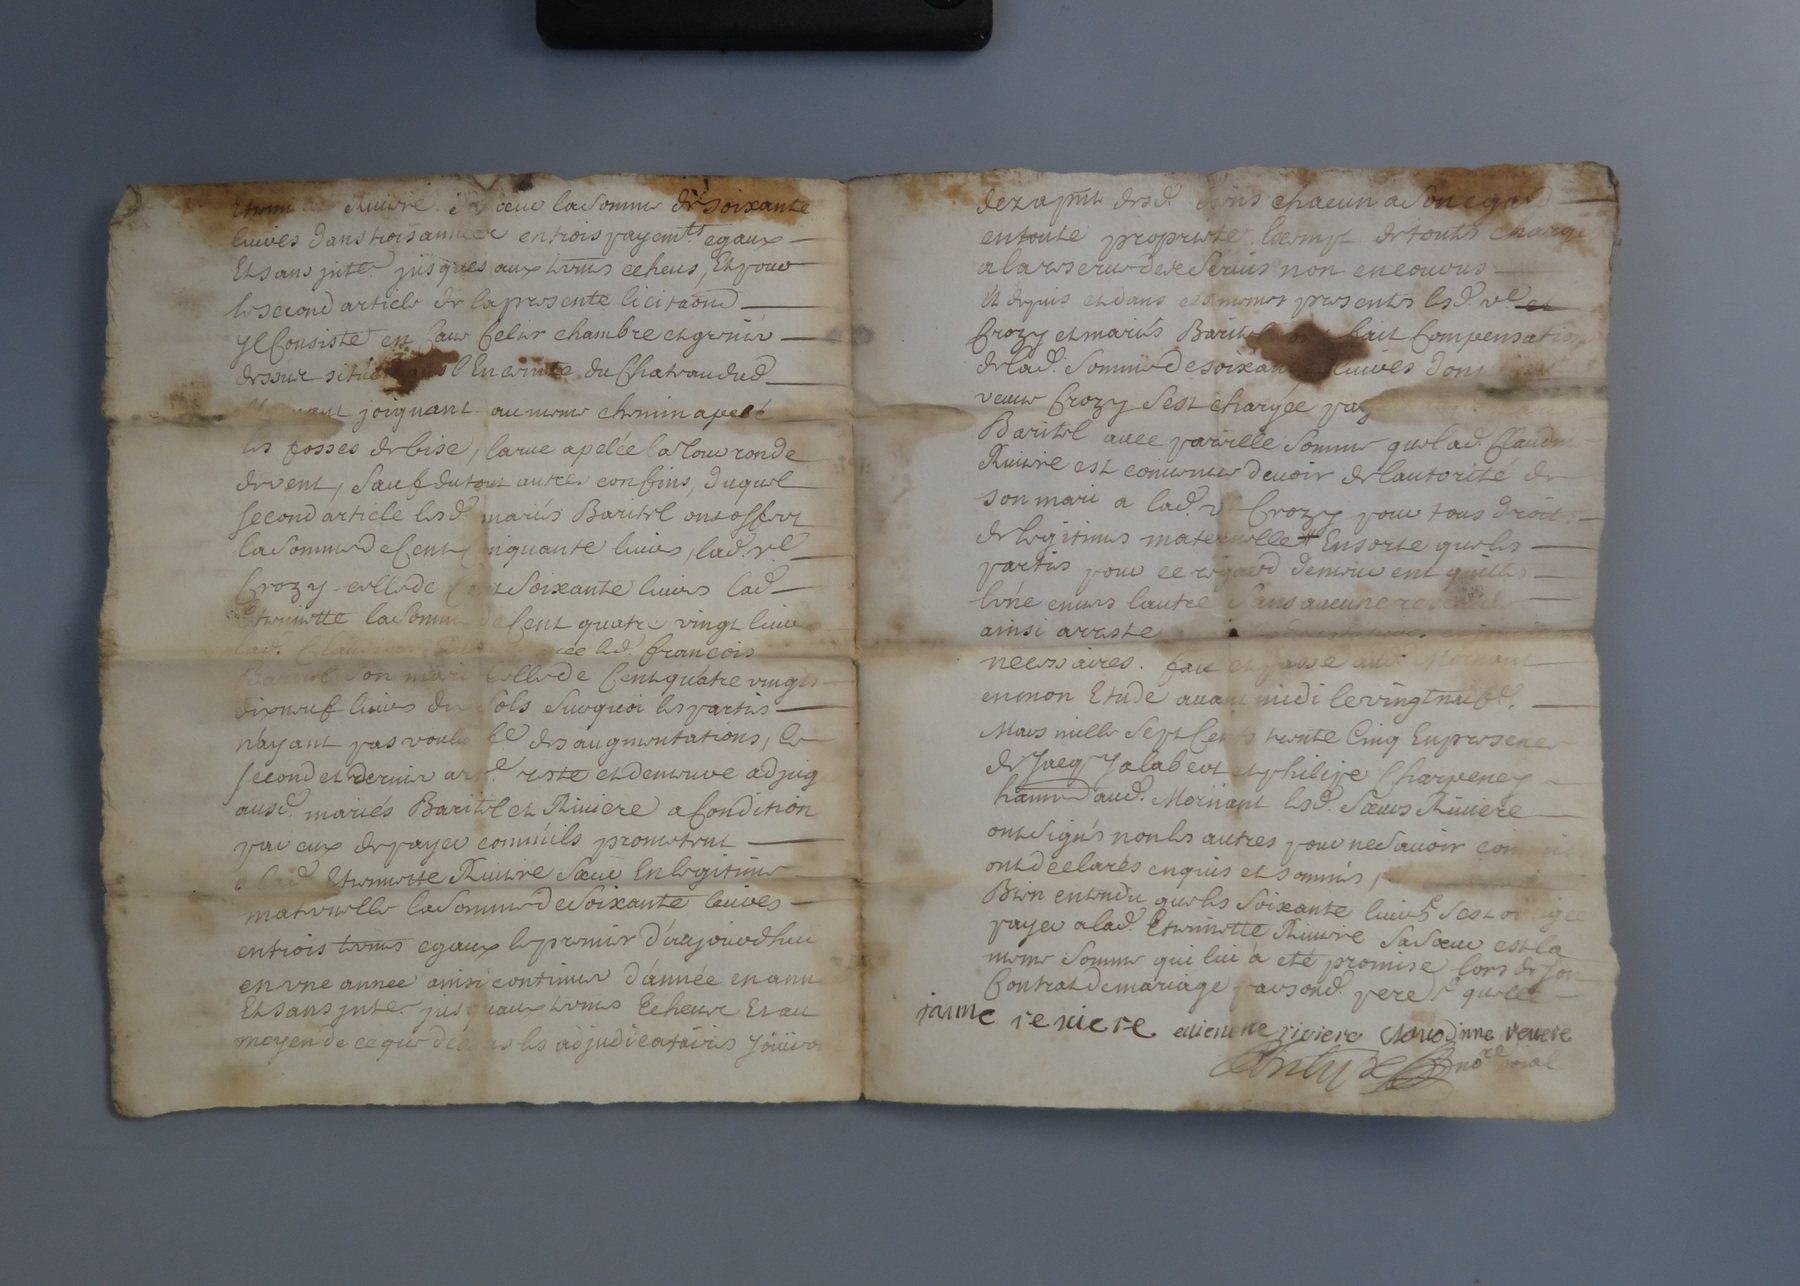 Riviere sa sœur la somme de soixante
livres dans trois années en trois payem.ts egaux
Et sans inte.t jusques aux termes echeus, Et pour
le second article de la presente licitaond
yl Consiste en Cave Celier chambre et grenier
dessus situé Enceinte du Chateau dud.
joignant au meme chemin apellé
les fosses de bise, la rue apelée la Tour ronde
de vent, Sauf du tout autres confins, duquel
second article lesd. mariés Baritel ont offert
la somme de Cent Cinquante livres, lad. v.e
Crozy celle de Cent Soixante livres lad.
Etiennette la Somme de Cent quatre vingt livres
lad. Claudine led. francois
Baritel Son mari Celle de Cent quatre vingts
dix neuf livres dix Sols Surquoi les parties
n'ayant pas voulu des augmentations, le
second et dernier art.e reste et demeure adjugé
ausd. mariés Baritel et Riviere a Condition
par eux de payer comm'ils promettent
a lad. Etiennette Riviere Sœur En legitime
maternelle la Somme de Soixante livres
en trois termes egaux le premier d'aujourdhui
en une année ainsi continuer d'année en année
Et sans inte.t jusquaux termes Echeus Et au
moyen de ce que dessus les adjudicataires Joüiront
chacun a Son egard
en toute proprieté Exempt de toutes charges
a la reserve des Servis non encourus
Et depuis et dans ces memes presentes lesd. v.e et
Crozy et mariés Baritel ont fait Compensation
de lad. Somme de soixante livres dont
veuve Crozy s'est chargée
Baritel avec pareille Somme que lad. Claudine
Riviere est convenue devoir de l'autorité de
son mari a lad. v.e Crozy pour tous droits
de legitime maternelle Ensorte que les
parties pour ce regard demeurent quittes
l'une envers lautre Sans aucune reserve
ainsi arresté
necessaires. fait et passé aud. Mornant
en mon Etude avant midi le vingt neuf.e
Mars mille Sept Cents trente Cinq En presence
de Jacq. Jalabert et philipe Charpeney
aud. Mornant lesd. Sœurs Riviere
ont Signés non les autres pour ne Savoir comme ils
ont déclarés enquis et sommés,
Bien entendu que les Soixante livres
payer a lad. Etiennette Riviere Sa Sœur est la
meme Somme qui lui a eté promise lors de Son
Contrat de mariage par sond. pere
reuiere riviere
no.re royal